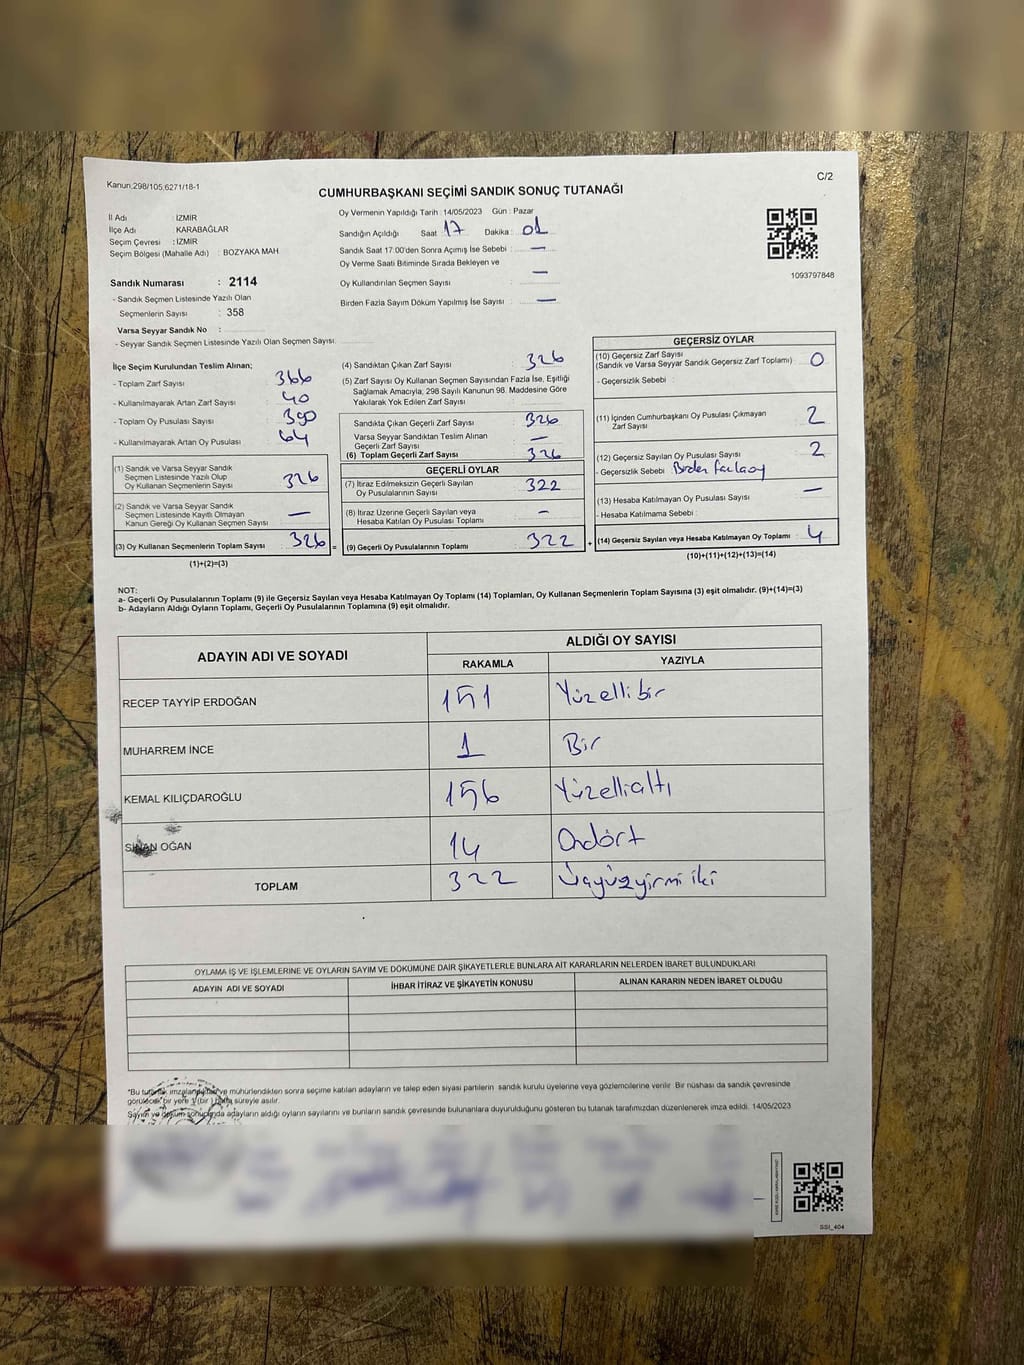 Kanun:298/105,6271/18-1
C/2
CUMHURBAŞKANI SEÇİMİ SANDIK SONUÇ TUTANAĞI
İl Adı : İZMİR
İlçe Adı : KARABAĞLAR
Seçim Çevresi : İZMİR
Seçim Bölgesi (Mahalle Adı) : BOZYAKA MAH
Sandık Numarası : 2114
- Sandık Seçmen Listesinde Yazılı Olan
Seçmenlerin Sayısı : 358
Varsa Seyyar Sandık No :
- Seyyar Sandık Seçmen Listesinde Yazılı Olan Seçmen Sayısı:
Oy Vermenin Yapıldığı Tarih : 14/05/2023 Gün : Pazar
Sandığın Açıldığı Saat 17 Dakika : 01
Sandık Saat 17:00'den Sonra Açımış İse Sebebi : —
Oy Verme Saati Bitiminde Sırada Bekleyen ve
Oy Kullandırılan Seçmen Sayısı : —
Birden Fazla Sayım Döküm Yapılmış İse Sayısı : —
1093797848
İlçe Seçim Kurulundan Teslim Alınan;
- Toplam Zarf Sayısı : 366
- Kullanılmayarak Artan Zarf Sayısı : 40
- Toplam Oy Pusulası Sayısı : 390
- Kullanılmayarak Artan Oy Pusulası : 64
(1) Sandık ve Varsa Seyyar Sandık
Seçmen Listesinde Yazılı Olup
Oy Kullanan Seçmenlerin Sayısı : 326
(2) Sandık ve Varsa Seyyar Sandık
Seçmen Listesinde Kayıtlı Olmayan
Kanun Gereği Oy Kullanan Seçmen Sayısı : —
(3) Oy Kullanan Seçmenlerin Toplam Sayısı : 326 =
(1)+(2)=(3)
(4) Sandıktan Çıkan Zarf Sayısı : 326
(5) Zarf Sayısı Oy Kullanan Seçmen Sayısından Fazla İse, Eşitliği
Sağlamak Amacıyla, 298 Sayılı Kanunun 98. Maddesine Göre
Yakılarak Yok Edilen Zarf Sayısı :
Sandıkta Çıkan Geçerli Zarf Sayısı : 326
Varsa Seyyar Sandıktan Teslim Alınan
Geçerli Zarf Sayısı : —
(6) Toplam Geçerli Zarf Sayısı : 326
GEÇERLİ OYLAR
(7) İtiraz Edilmeksizin Geçerli Sayılan
Oy Pusulalarının Sayısı : 322
(8) İtiraz Üzerine Geçerli Sayılan veya
Hesaba Katılan Oy Pusulası Toplamı : —
(9) Geçerli Oy Pusulalarının Toplamı : 322 +
GEÇERSİZ OYLAR
(10) Geçersiz Zarf Sayısı
(Sandık ve Varsa Seyyar Sandık Geçersiz Zarf Toplamı) : 0
- Geçersizlik Sebebi :
(11) İçinden Cumhurbaşkanı Oy Pusulası Çıkmayan
Zarf Sayısı : 2
(12) Geçersiz Sayılan Oy Pusulası Sayısı : 2
- Geçersizlik Sebebi : Birden fazla oy
(13) Hesaba Katılmayan Oy Pusulası Sayısı : —
- Hesaba Katılmama Sebebi :
(14) Geçersiz Sayılan veya Hesaba Katılmayan Oy Toplamı : 4
(10)+(11)+(12)+(13)=(14)
NOT:
a- Geçerli Oy Pusulalarının Toplamı (9) ile Geçersiz Sayılan veya Hesaba Katılmayan Oy Toplamı (14) Toplamları, Oy Kullanan Seçmenlerin Toplam Sayısına (3) eşit olmalıdır. (9)+(14)=(3)
b- Adayların Aldığı Oyların Toplamı, Geçerli Oy Pusulalarının Toplamına (9) eşit olmalıdır.
ADAYIN ADI VE SOYADI
ALDIĞI OY SAYISI
RAKAMLA YAZIYLA
RECEP TAYYİP ERDOĞAN 151 Yüzellibir
MUHARREM İNCE 1 Bir
KEMAL KILIÇDAROĞLU 156 Yüzellialtı
SİNAN OĞAN 14 Ondört
TOPLAM 322 Üçyüzyirmi iki
OYLAMA İŞ VE İŞLEMLERİNE VE OYLARIN SAYIM VE DÖKÜMÜNE DAİR ŞİKAYETLERLE BUNLARA AİT KARARLARIN NELERDEN İBARET BULUNDUKLARI
ADAYIN ADI VE SOYADI İHBAR İTİRAZ VE ŞİKAYETİN KONUSU ALINAN KARARIN NEDEN İBARET OLDUĞU
*Bu tutanak imzalandıktan ve mühürlendikten sonra seçime katılan adayların ve talep eden siyasi partilerin sandık kurulu üyelerine veya gözlemcilerine verilir. Bir nüshası da sandık çevresinde
görülecek bir yere 1 (bir) hafta süreyle asılır.
Sayım ve döküm sonucunda adayların aldığı oyların sayılarını ve bunların sandık çevresinde bulunanlara duyurulduğunu gösteren bu tutanak tarafımızdan düzenlenerek imza edildi. 14/05/2023
SSI_404